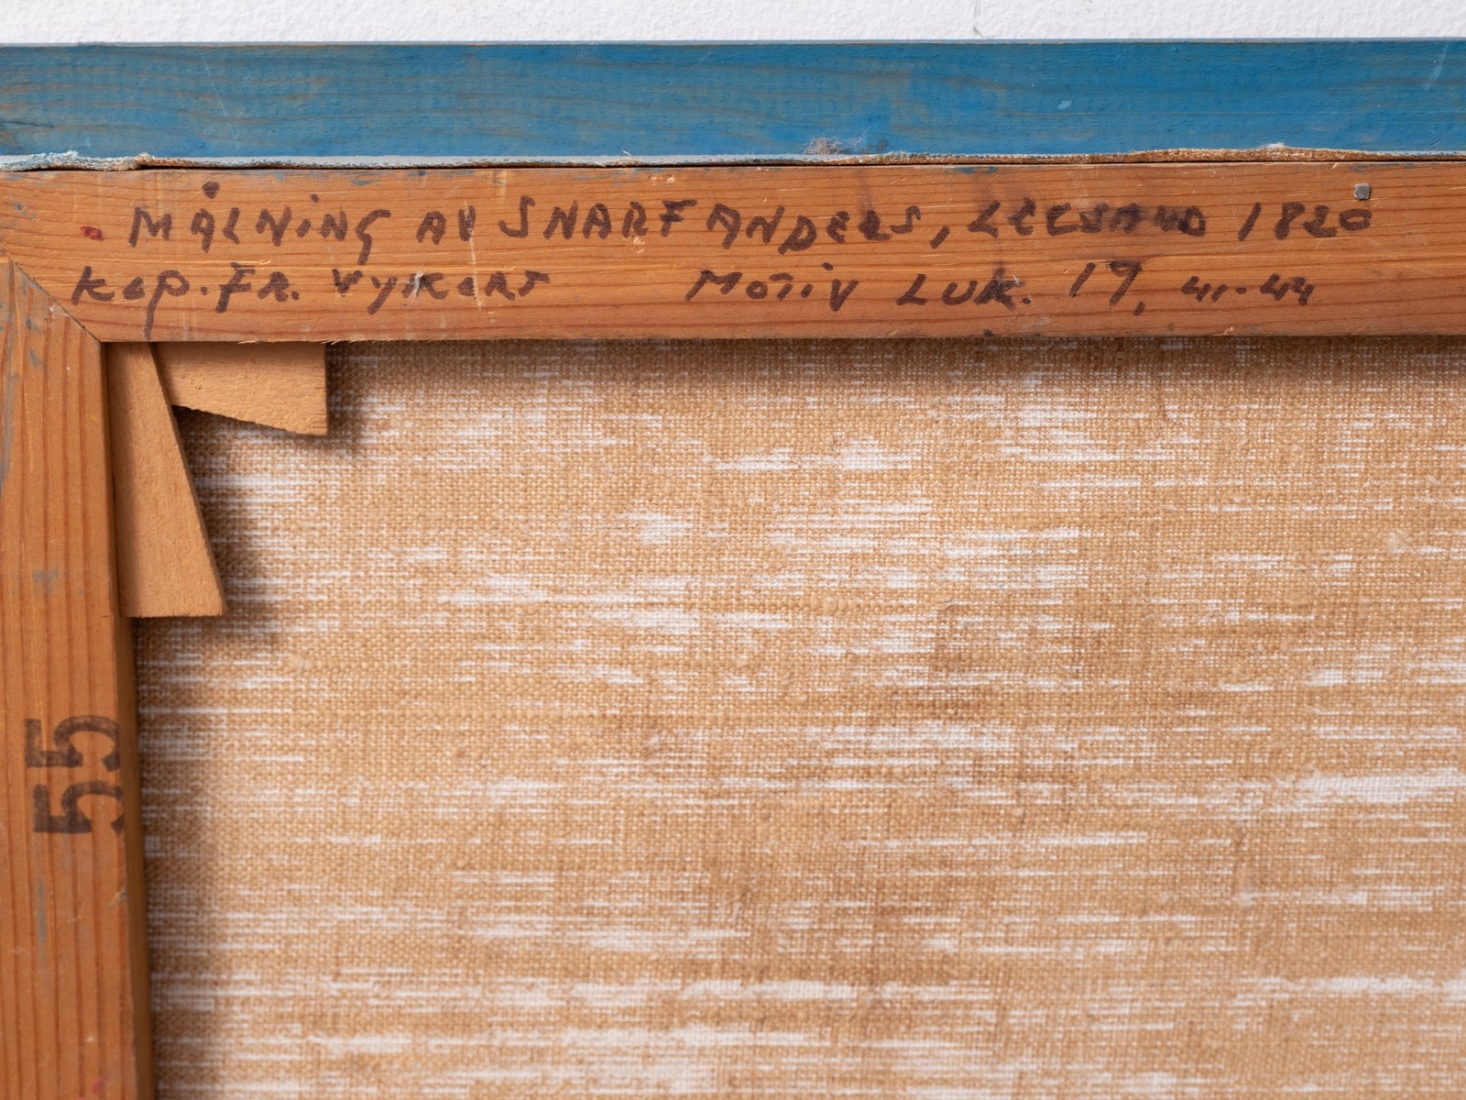 MÅLNING AV SNARF ANDERS, LEKSAND 1820
KOP. FR. VYKORT MOTIV LUK. 17, 41-44
55